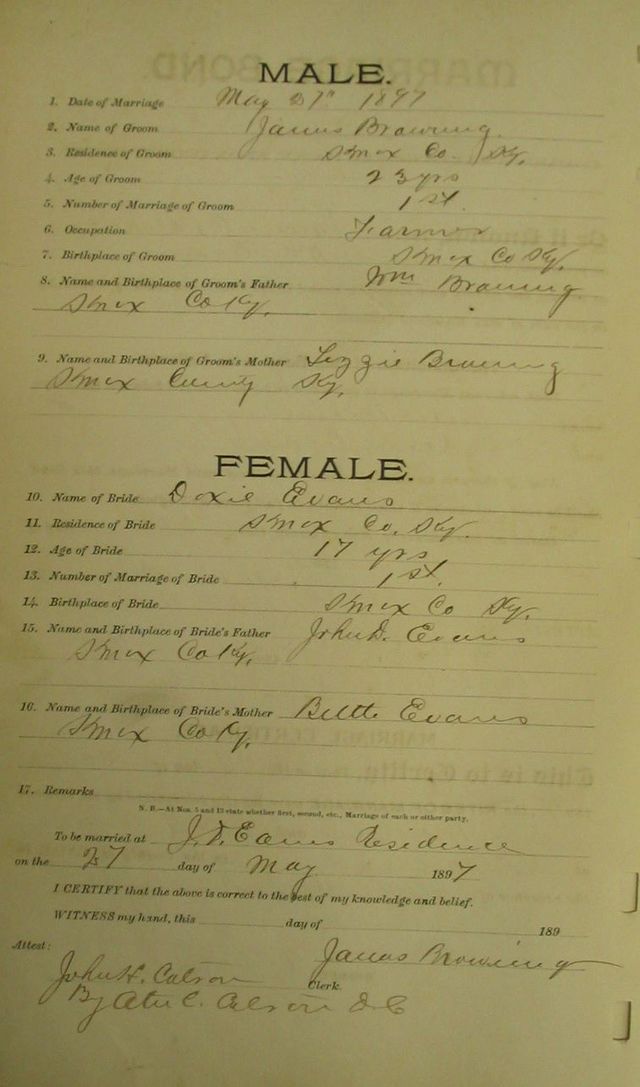 MALE.
1. Date of Marriage May 27th 1897
2. Name of Groom James Browning.
3. Residence of Groom Knox Co. Ky.
4. Age of Groom 23 yrs
5. Number of Marriage of Groom 1st.
6. Occupation Farmer
7. Birthplace of Groom Knox Co Ky.
8. Name and Birthplace of Groom's Father Wm Browning
Knox Co Ky.
9. Name and Birthplace of Groom's Mother Lizzie Browning
Knox County Ky.
FEMALE.
10. Name of Bride Doxie Evans
11. Residence of Bride Knox Co. Ky.
12. Age of Bride 17 yrs
13. Number of Marriage of Bride 1st.
14. Birthplace of Bride Knox Co Ky.
15. Name and Birthplace of Bride's Father John D. Evans
Knox Co Ky.
16. Name and Birthplace of Bride's Mother Evans
Knox Co Ky.
17. Remarks
N. B.—At Nos. 5 and 13 state whether first, second, etc., Marriage of each or either party.
To be married at J. D. Evans Residence
on the 27 day of May 1897
I CERTIFY that the above is correct to the best of my knowledge and belief.
WITNESS my hand, this day of 189
Attest: James Browning
John H. Catron Clerk.
By C. Catron D.C